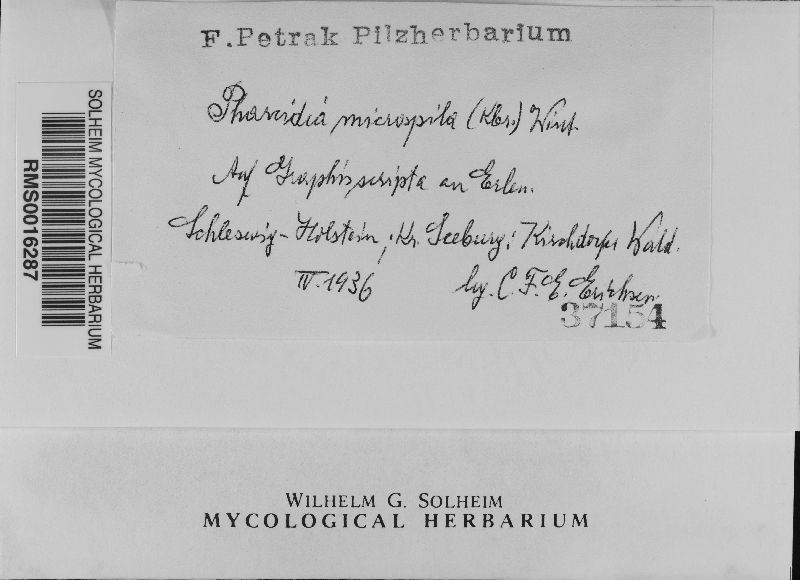 F. Petrak Pilzherbarium
Pharcidia microspila (Kbr.) Wint.
Auf Graphis scripta an Erlen.
Schleswig-Holstein; Kr. Seeburg: Kirchdorfer Wald.
IV. 1936 leg. C. F. E. Erichsen
37154
SOLHEIM MYCOLOGICAL HERBARIUM
RMS0016287
WILHELM G. SOLHEIM
MYCOLOGICAL HERBARIUM